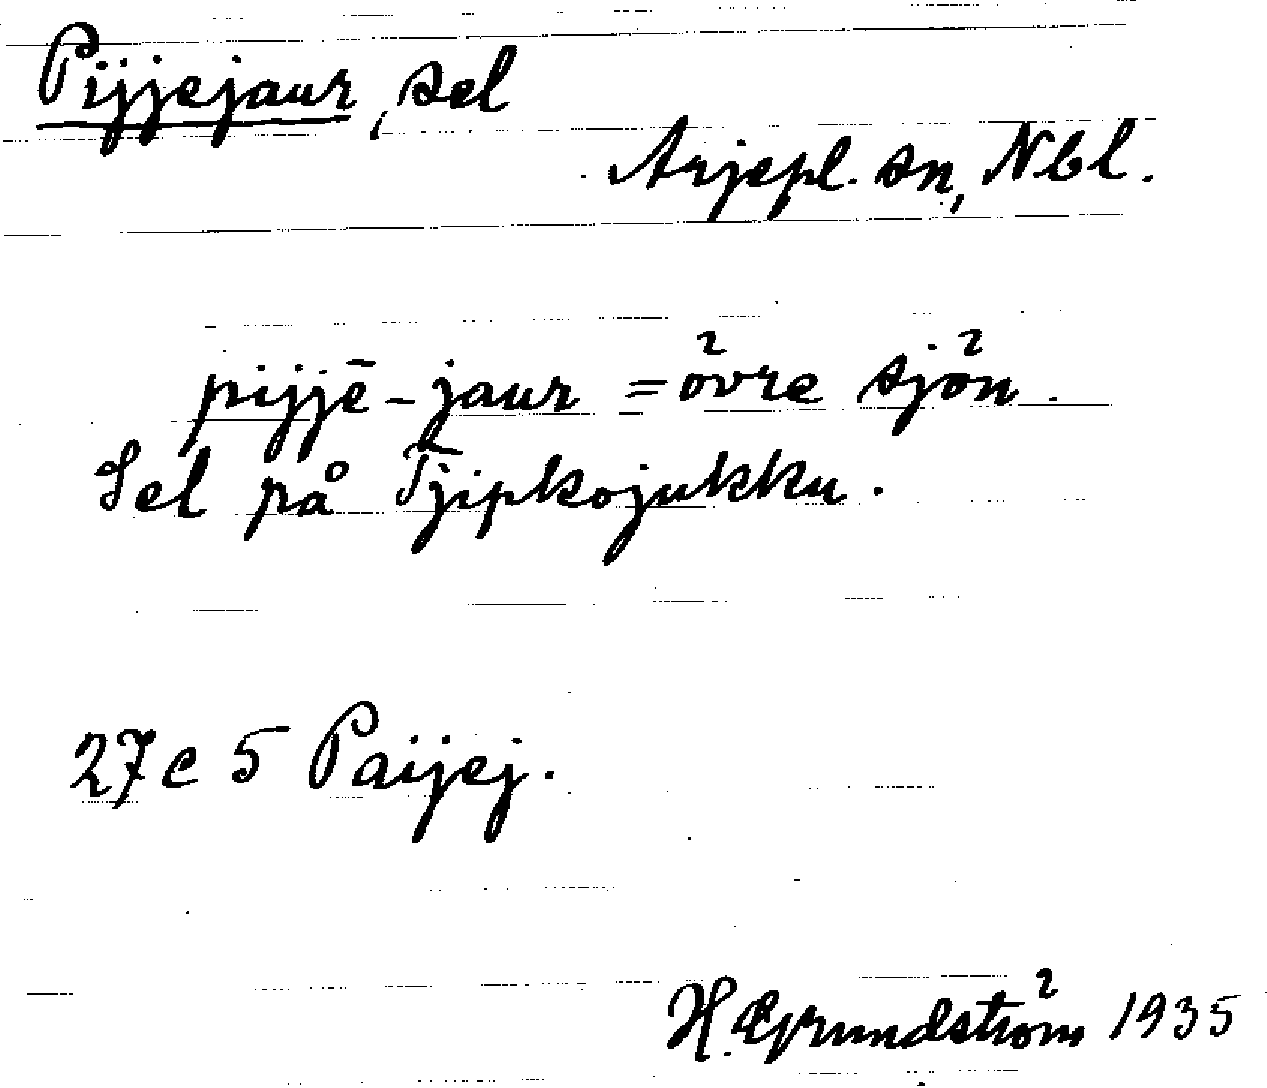 Pijjejaur, sel
Arjepl. sn, Nbl.
pijjē-jaur = övre sjön.
Sel på Tjipkojukku.
27c 5 Paijej.
H. Grundström 1935